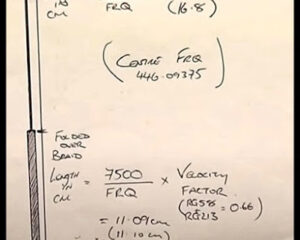 IN
CM FRQ (16.8)
(CENTRE FRQ
446.09375)
FOLDED
OVER
BRAID
LENGTH
IN
CM = 7500 / FRQ × VELOCITY
FACTOR
(RG58
RG213 = 0.66)
= 11.09cm
(11.10cm)